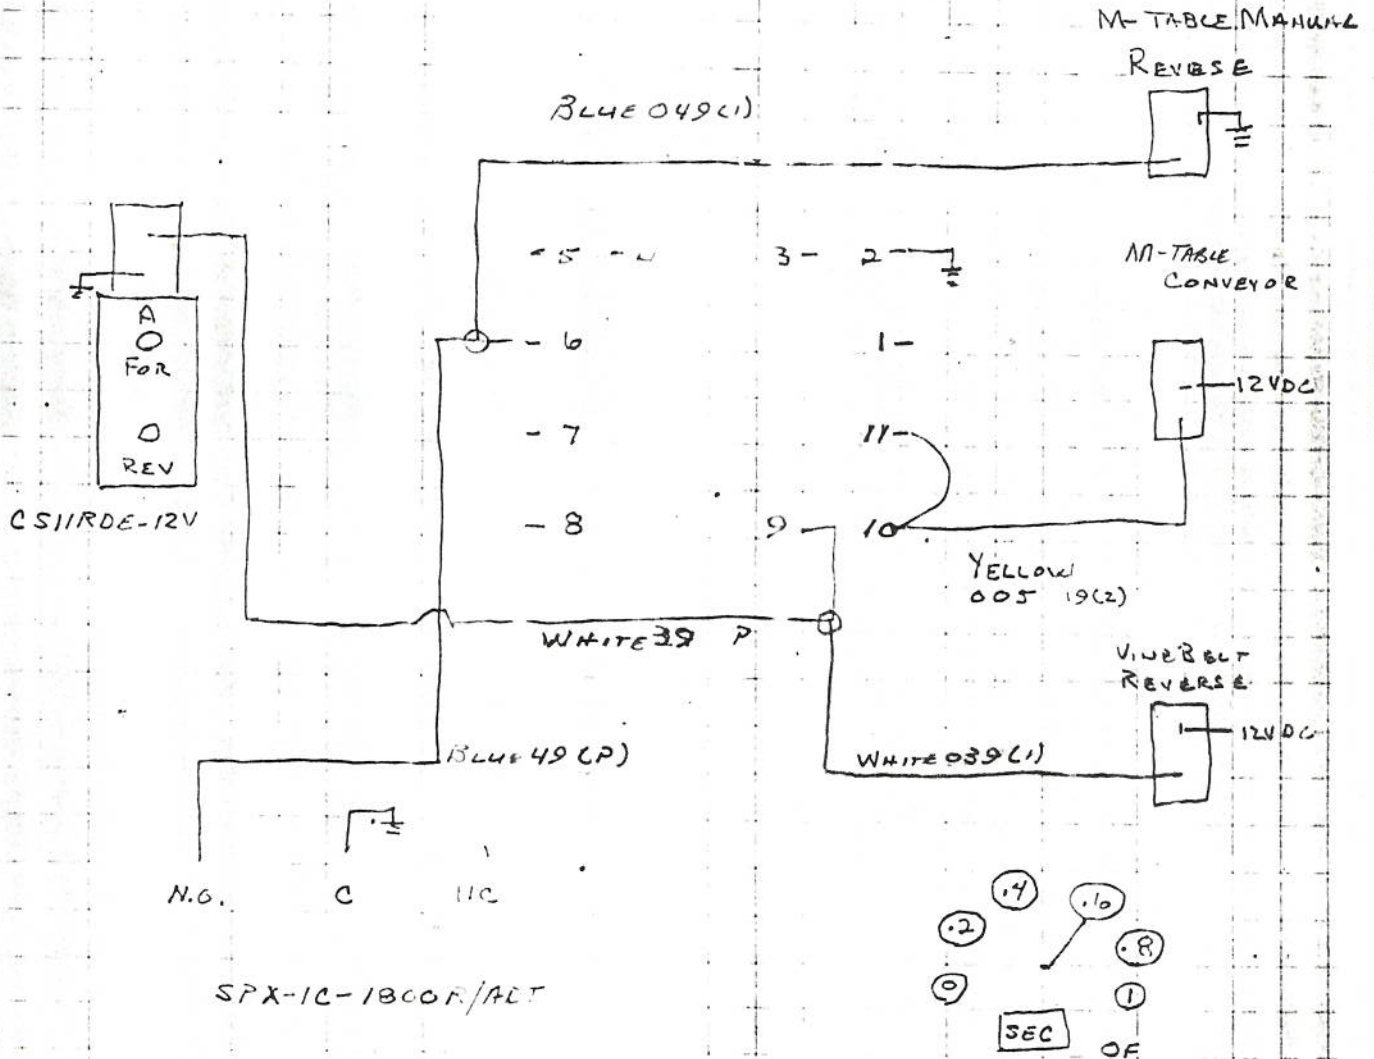 M-TABLE MANUAL
REVERSE
BLUE 049(1)
5
3 2
M-TABLE
CONVEYOR
A
FOR
6
1
12VDC
7
11
REV
CS11RDE-12V
8
9
10
YELLOW
005 19(2)
WHITE 39 P
VINE BELT
REVERSE
12VDC
BLUE 49 (P)
WHITE 039(1)
N.O. C
.4
.2
.8
0
1
SEC
OF